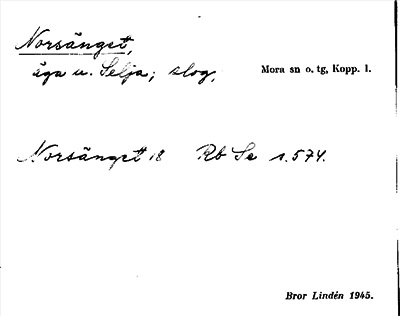 Norsänget,
äga u. Selja; slog.
Mora sn o. tg, Kopp. l.
Norsänget 18 Rb Se 1.574.
Bror Lindén 1945.